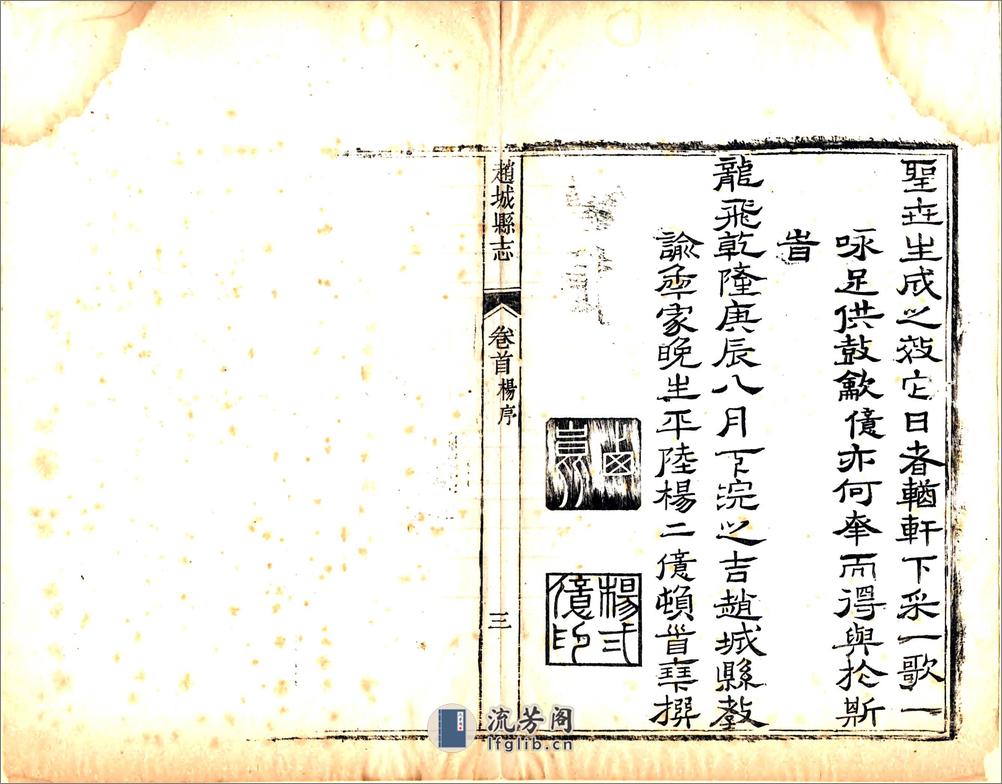 聖世生成之效它日者輶軒下采一歌一
咏足供鼓龡億亦何幸而得與扵斯
旹
龍飛乾隆庚辰八月下浣之吉趙城縣教
諭年家晚生平陸楊二億頓首拜撰
楊弍億印
趙城縣志
卷首
楊序
三
流芳阁
lfglib.cn